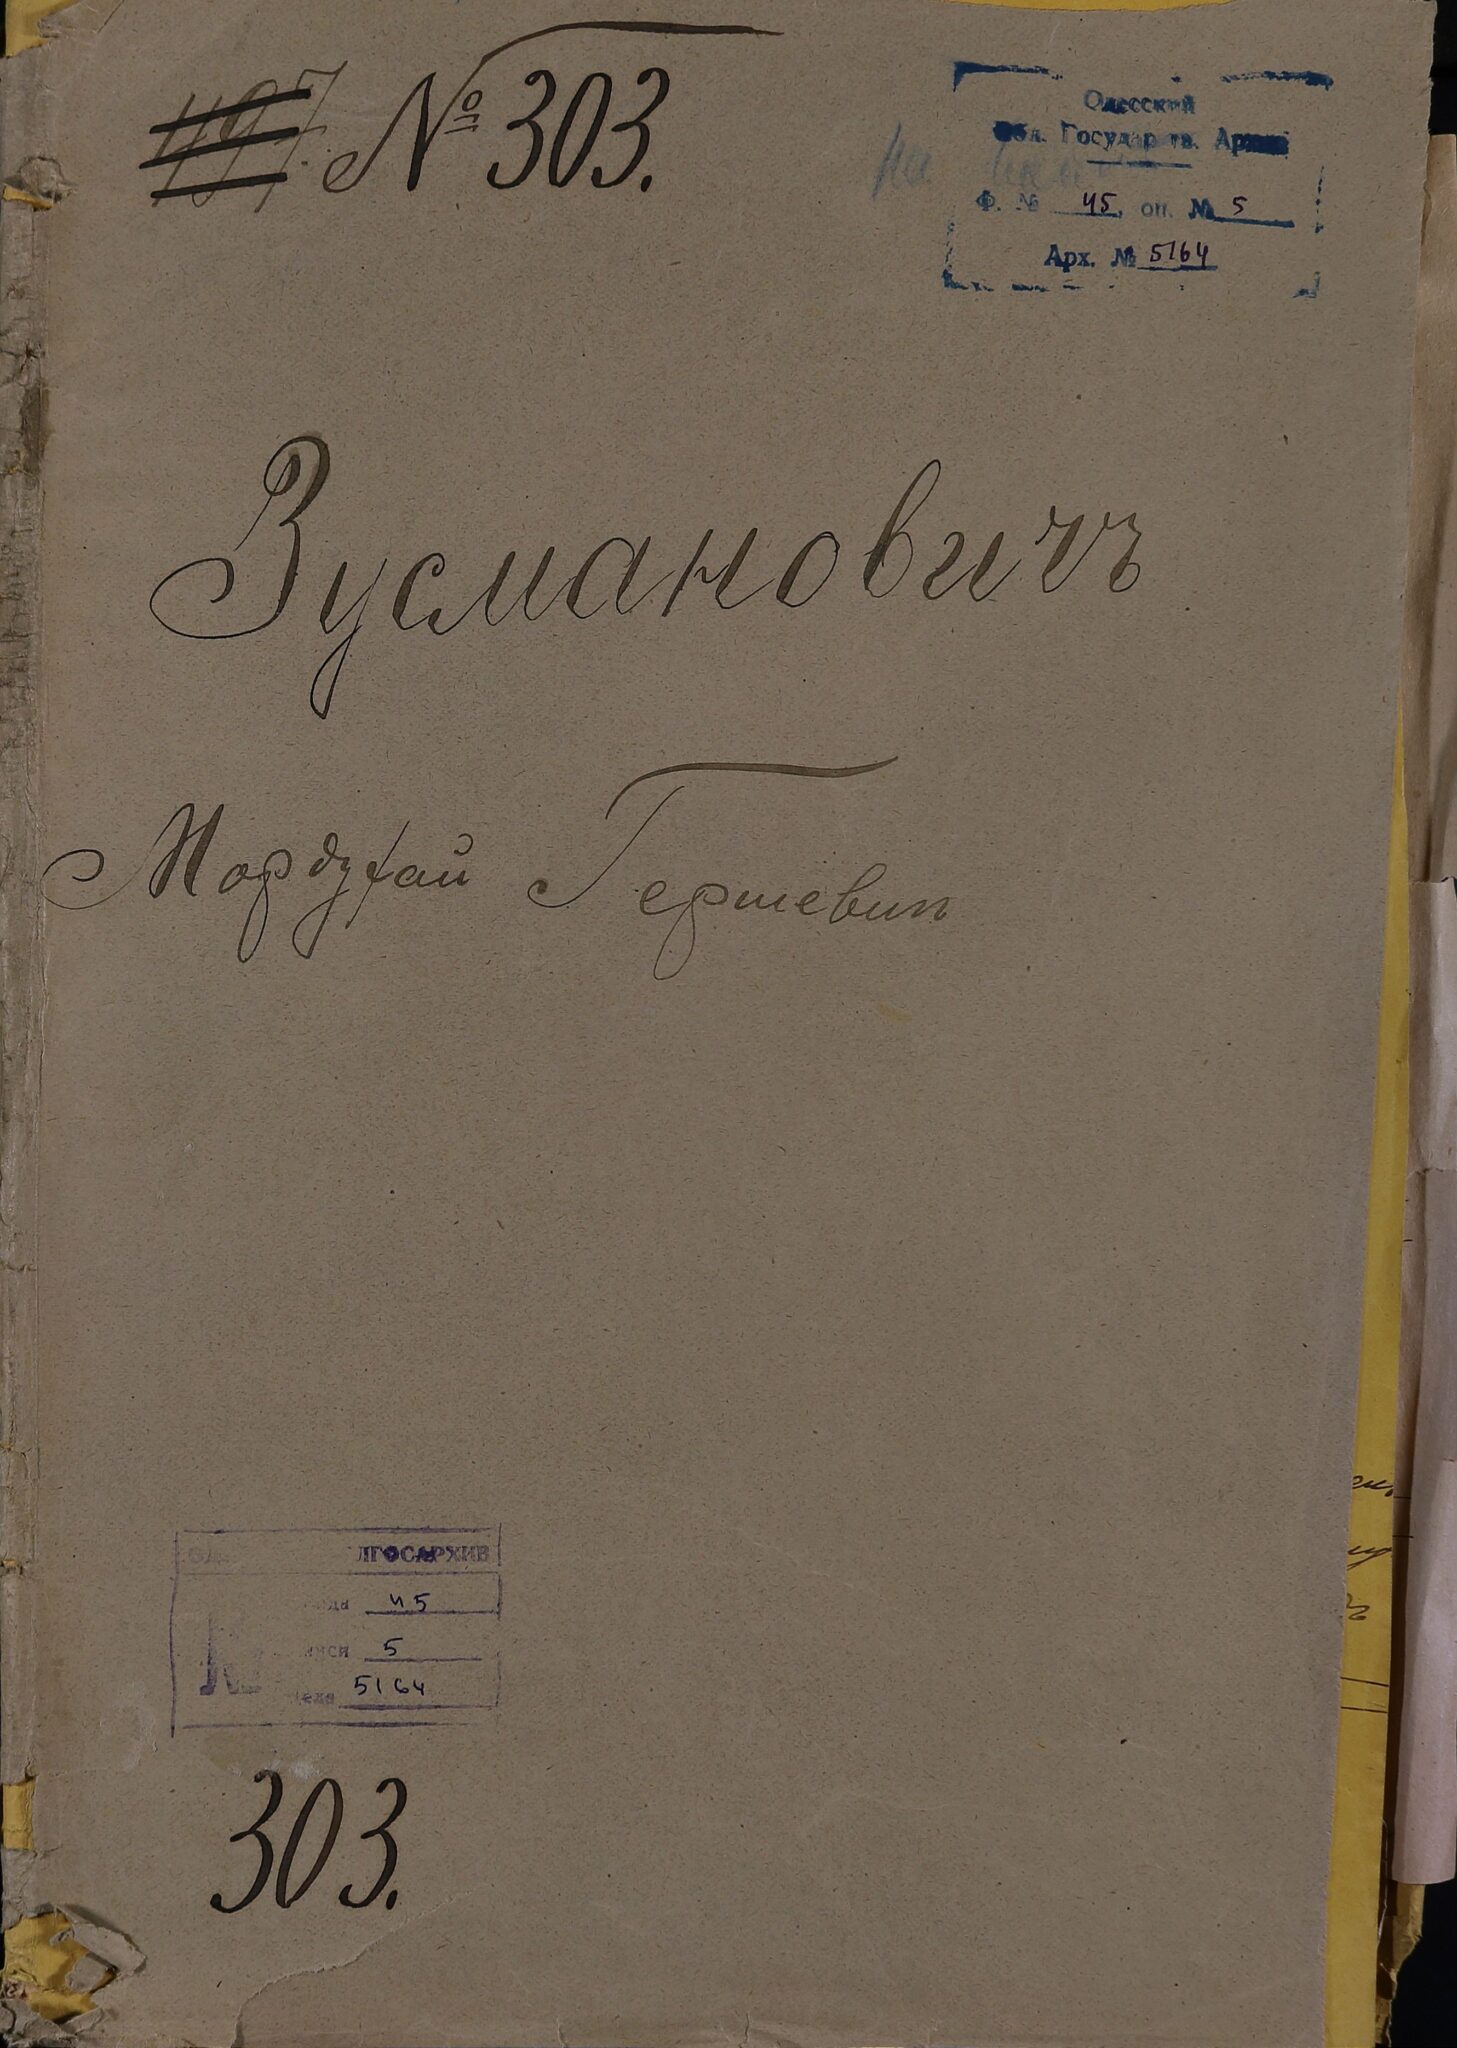 497 № 303.
Одесский
Обл. Государств. Архив
Ф. № 45, оп. № 5
Арх. № 5164
Зусмановичъ
Мордухай Гершевичъ
ОДЕ ЛГОСАРХИВ
45
5
5164
303.